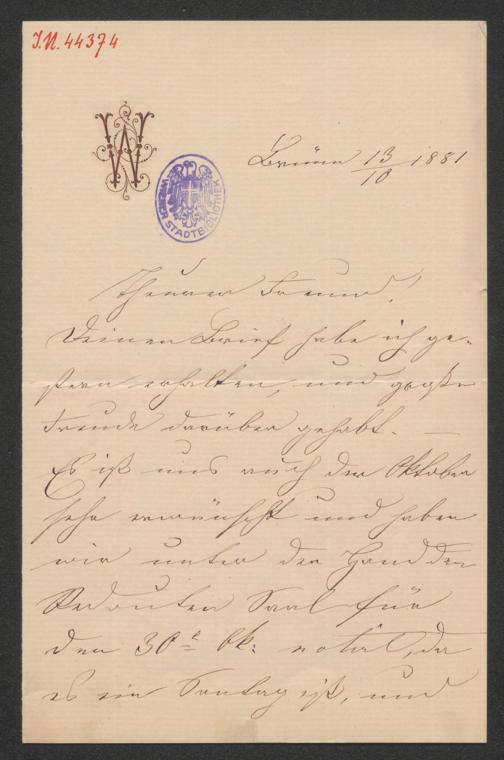 I.N. 44374
W
WIENER STADTBIBLIOTHEK
Brünn 13/10 1881
Theurer Freund!
Deinen Brief habe ich ge-
stern erhalten, und große
Freude darüber gehabt. —
Es ist uns auch der Oktober
sehr erwünscht und haben
wir unter der Hand den
Redouten Saal für
den 30t Ok: notirt, da
es ein Sontag ist, und